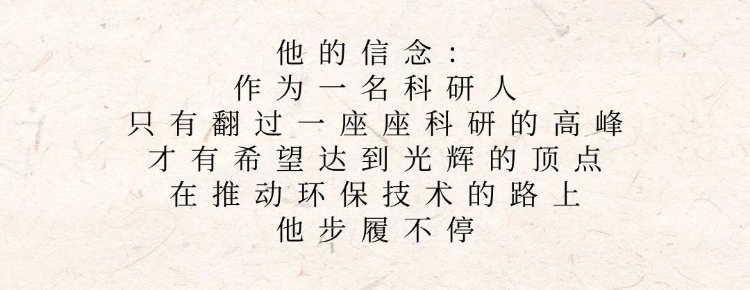 他的信念：
作为一名科研人
只有翻过一座座科研的高峰
才有希望达到光辉的顶点
在推动环保技术的路上
他步履不停